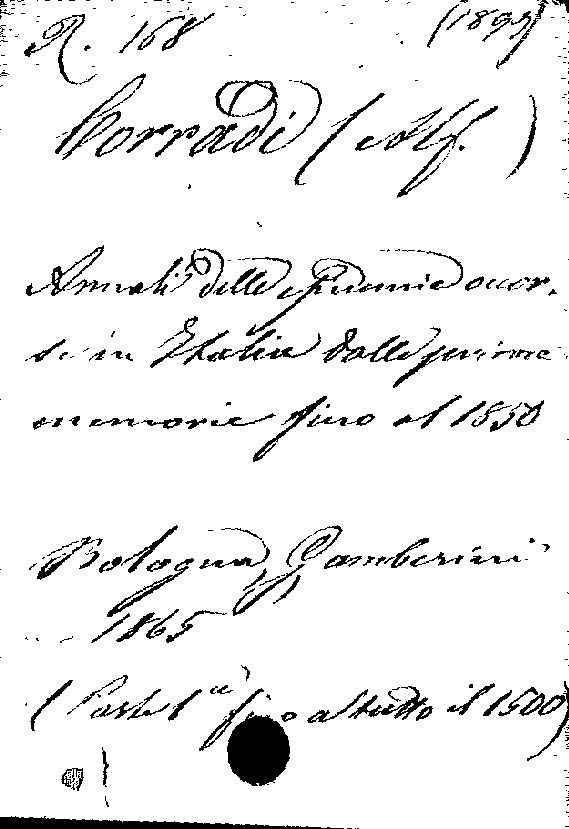 R. 168 (1899)
Corradi (Alf.)
Annali delle epidemie occor-
se in Italia dalle prime
memorie fino al 1850
Bologna, Gamberini
1865
(Parte 1a fino a tutto il 1500)